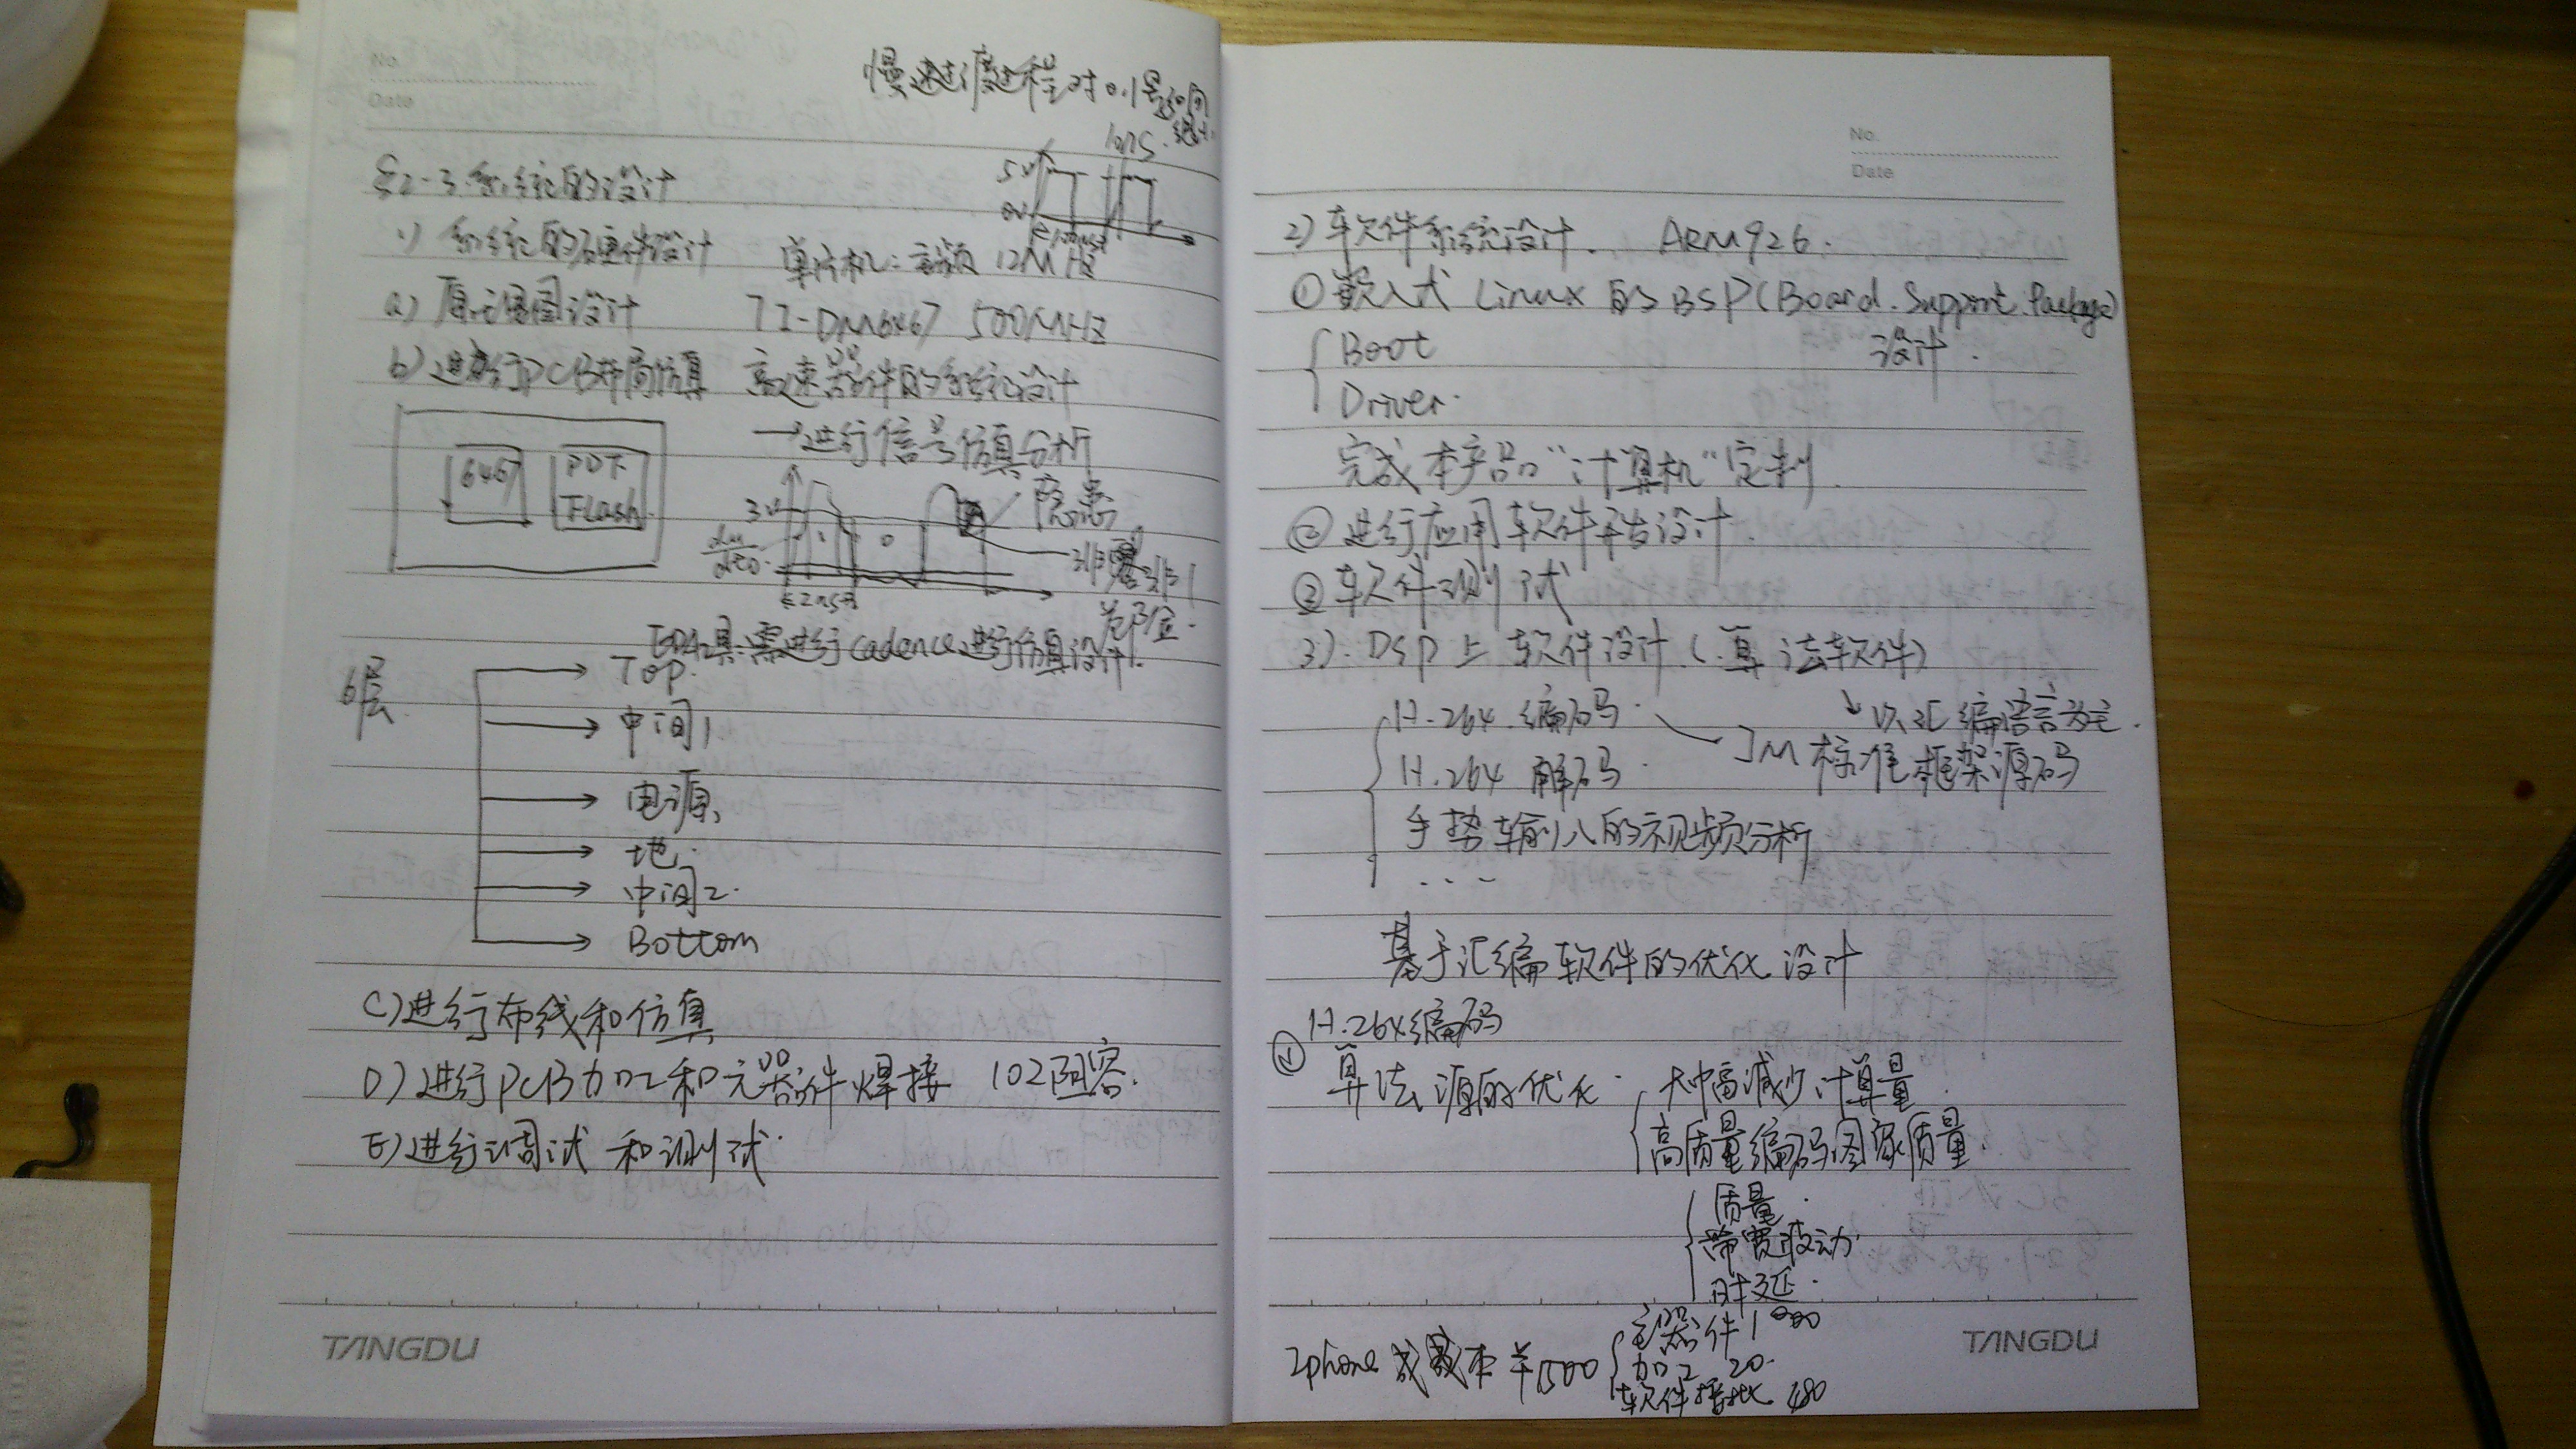 No.
Date
慢速过渡过程对0.1
10ns
5V
0V
§2-3.系统的设计
1) 系统的硬件设计
单片机：主频 12MHz
a) 原理图设计
TI-DM6467 500MHz
b) 进行PCB布局仿真
高速器件的系统设计
→进行信号仿真分析
6467
Flash
3V
1
0
隐患
du/dt
2ns
EDA工具:需进行cadence进行仿真设计
6层
Top.
中间1
电源、
地.
中间2.
Bottom
C)进行布线和仿真
D)进行PCB加工和元器件焊接 102阻容.
E)进行调试和测试.
TANGDU
No.
Date
2)软件系统设计. ARM926.
①嵌入式 Linux 的BSP(Board.Support.Package)
设计.
Boot
Driver.
完成本产品“计算机”定制
②进行应用软件平台设计.
③软件测试
3).DSP上软件设计.(算法软件)
↓以汇编语言为主.
H.264.编码.
JM标准框架源码
H.264 解码.
手势输入的视频分析
...
基于汇编软件的优化设计
H.264编码
算法源的优化.
大幅高减少计算量.
高质量编码图象质量.
质量.
带宽波动.
时延.
Iphone 成本 ¥1500
元器件1000
加工 20.
软件 480
TANGDU